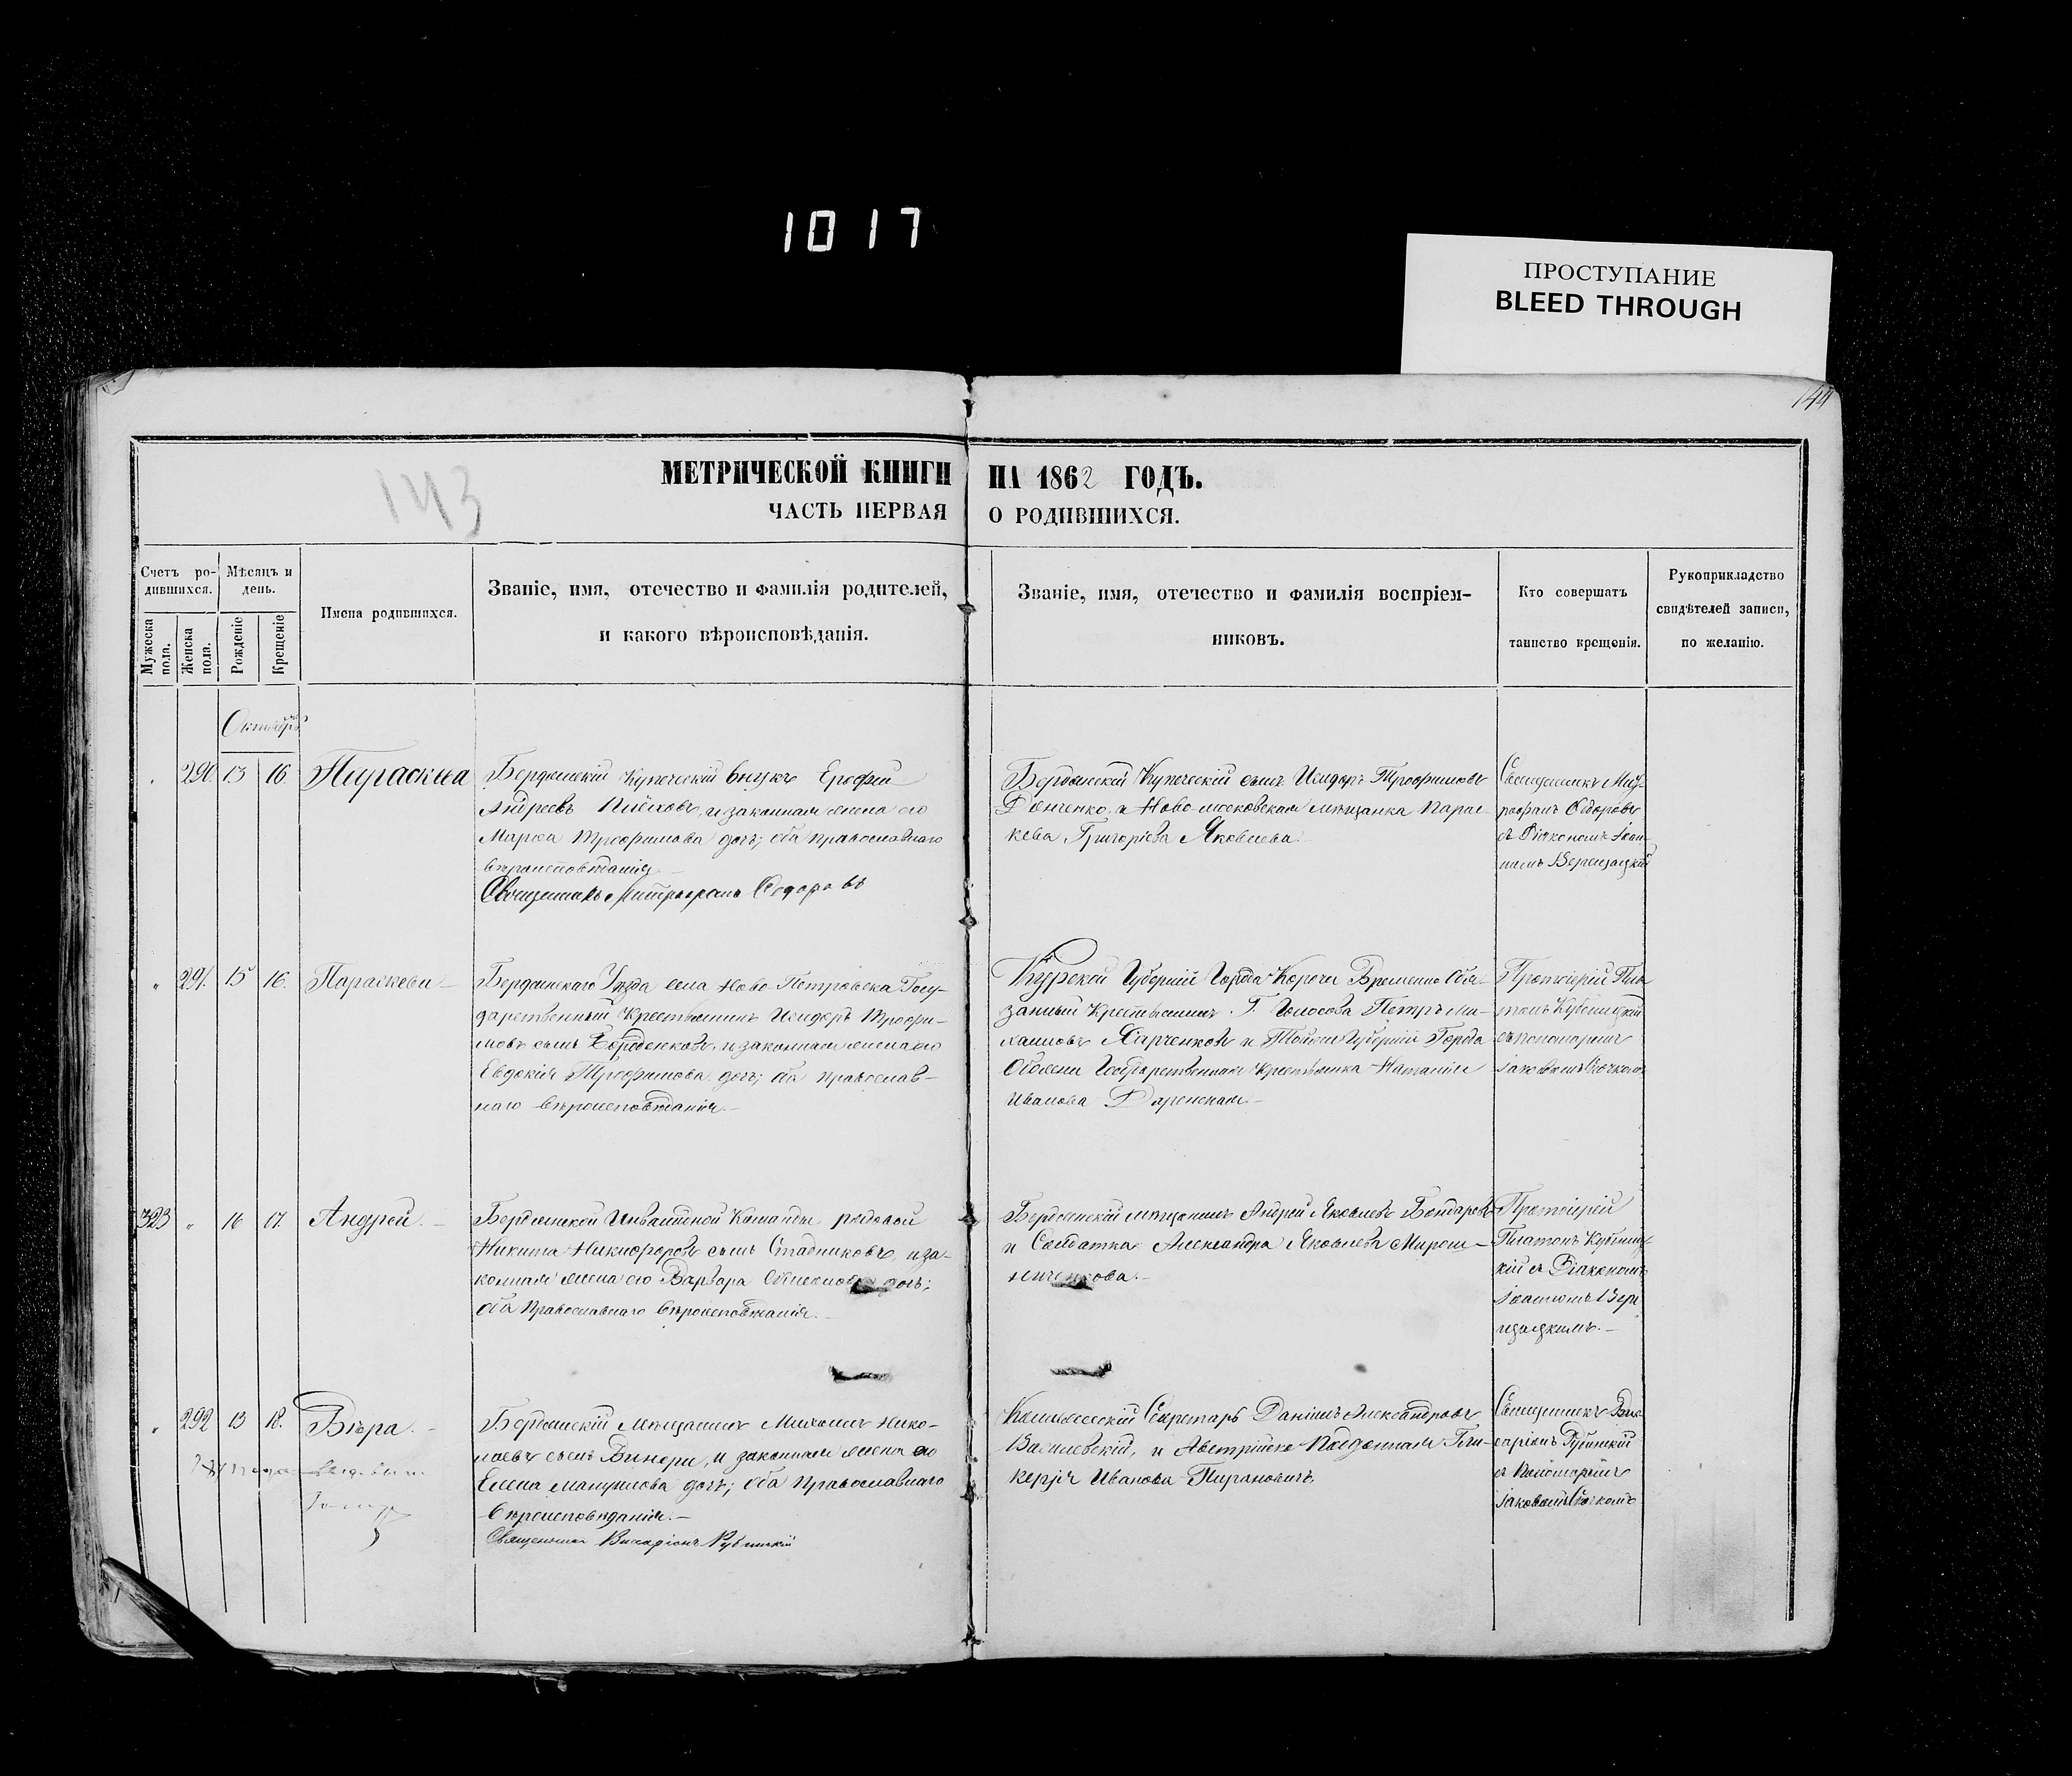 1017
ПРОСТУПАНИЕ
BLEED THROUGH
144
143
МЕТРИЧЕСКОЙ КНИГИ НА 1862 ГОДЪ.
ЧАСТЬ ПЕРВАЯ О РОДИВШИХСЯ.
Счетъ ро-
дившихся.
Мужеска пола.
Женска пола.
Мѣсяцъ и
день.
Рожденіе
Крещеніе
Имена родившихся.
Званіе, имя, отечество и фамилія родителей,
и какого вѣроисповѣданія.
Званіе, имя, отечество и фамилія воспріем-
никовъ.
Кто совершатъ
таинство крещенія.
Рукоприкладство
свидѣтелей записи,
по желанію.
Октябрь
290 13 16 Параскева
Бердянскій Купеческій внукъ Ерофей
Андреевъ и законная жена его
Марѳа Трофимова дочь; оба православнаго
вѣроисповѣданія
Священникъ Митрофанъ Ѳедоровъ
Бердянскій Купеческій сынъ Исидоръ Трофимовъ
и Ново-московская мѣщанка Парас-
кева Григоріева Яковлева.
Священникъ Мит-
рофанъ Ѳедоровъ
съ Діакономъ Іоан-
номъ Верещацкій
291. 15 16. Параскева
Бердянскаго Уѣзда села Ново-Петровска Госу-
дарственный Крестьянинъ Исидоръ Трофи-
мовъ сынъ и законная жена его
Евдокія Трофимова дочь; оба православ-
наго вѣроисповѣданія.-
Курской Губерніи Города Корочи Временно Обя-
занный Крестьянинъ Г. Голосова Петръ Ми-
хаиловъ Харченковъ и Той же Губерніи Города
Обояни Государственная Крестьянка Наталія
Иванова
Протоіерей Пла-
тонъ
съ пономаремъ
Іаковомъ
323 16 17. Андрей.
Бердянской Инвалидной Команды рядовой
Никита Никифоровъ сынъ Стадниковъ, и за-
конная жена его Варвара дочь;
оба Православнаго вѣроисповѣданія.-
Бердянскій мѣщанинъ Андрей Яковлевъ Бондаревъ
и Солдатка Александра Яковлева Мирош-
ниченкова.-
Протоіерей
Платонъ
кій съ Діакономъ
Іоанномъ Вере-
щацкимъ.-
292 13 18. Вѣра.
Бердянскій Мѣщанинъ Михаилъ Нико-
лаевъ сынъ и законная жена его
Елена дочь; оба Православнаго
вѣроисповѣданія.-
Священникъ Виссаріонъ
Коллежскій Секретарь Даніилъ Александровъ
Василевскій, и Австрійско-Подданная Гли-
керія Иванова
Священникъ Вис-
саріонъ
съ Пономаремъ
Іаковомъ